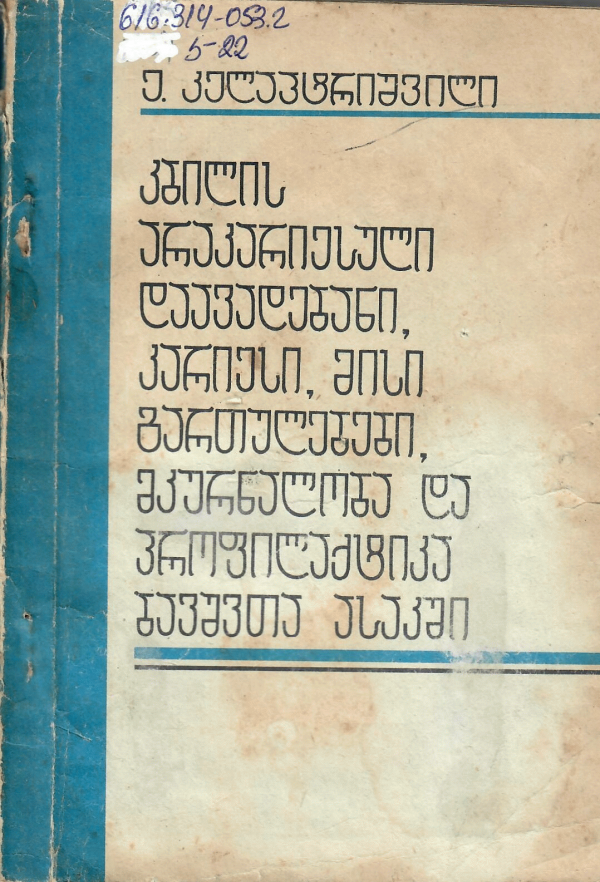 616.314-053.2
5-22
ე. კელაპტრიშვილი
კბილის
არაკარიესული
დაავადებანი,
კარიესი, მისი
გართულებები,
მკურნალობა და
პროფილაქტიკა
ბავშვთა ასაკში